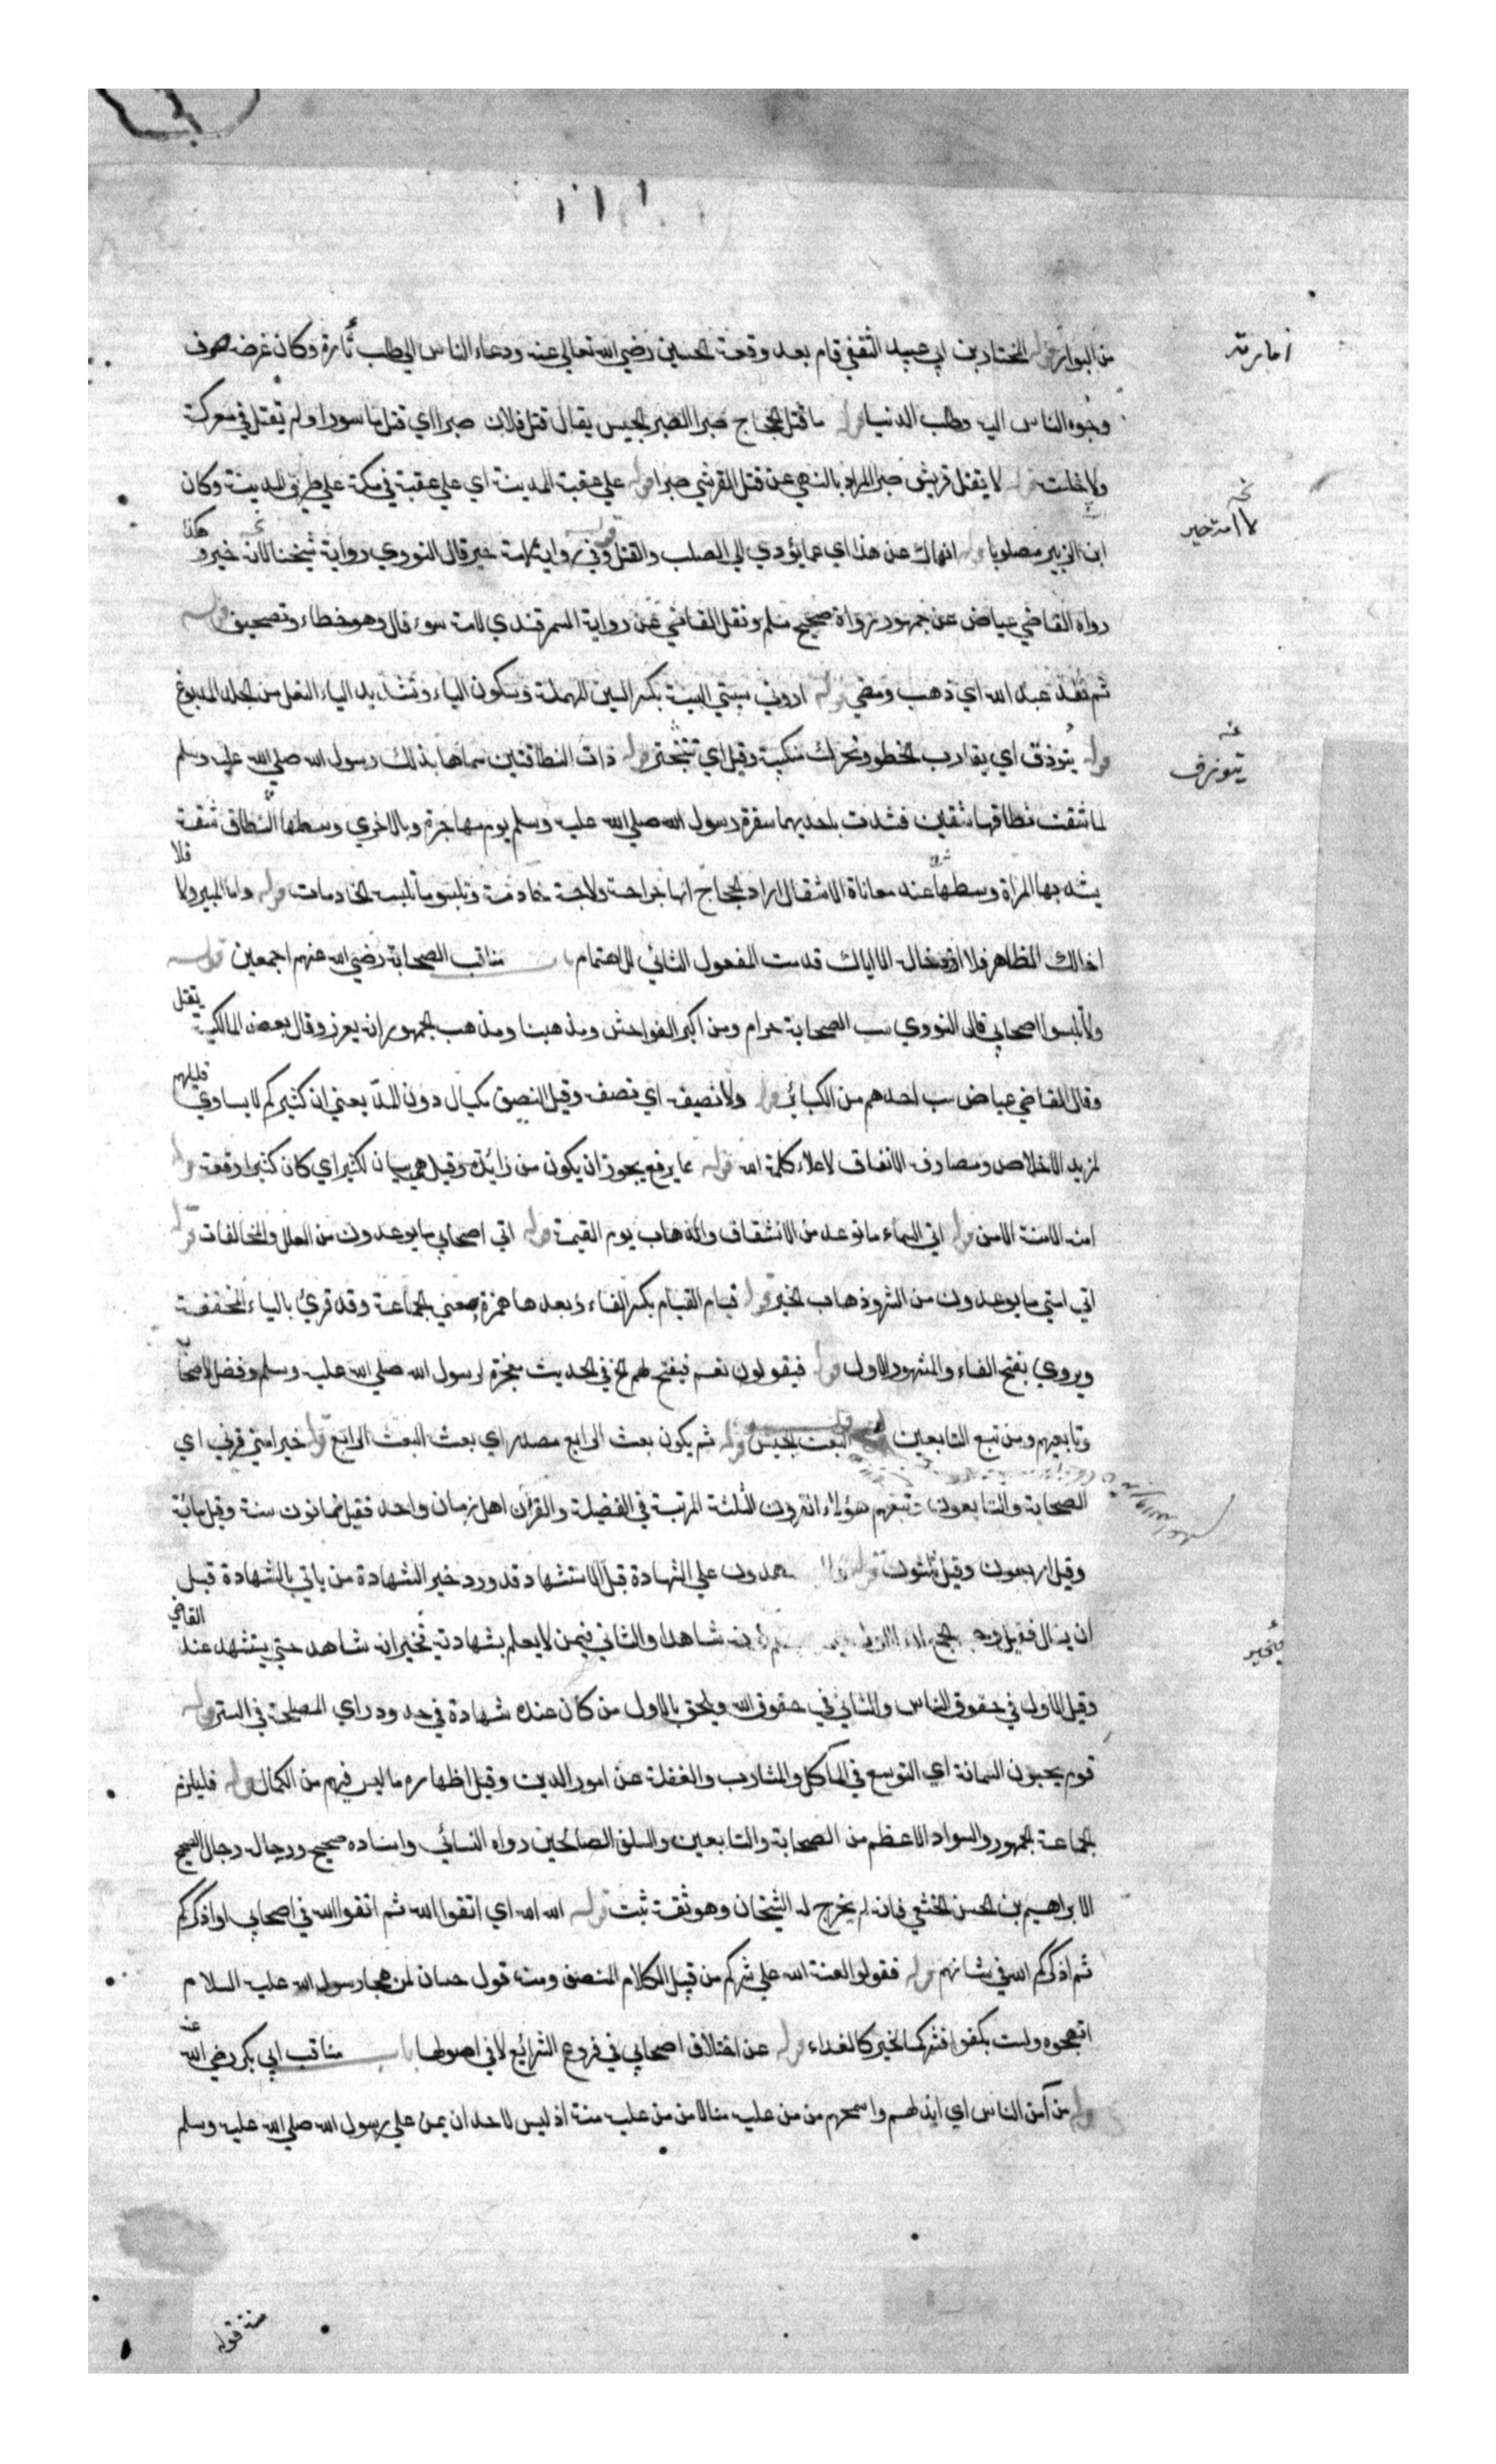 من البوار قوله المختار بن ابي عبيد الثقفي قام بعد وقعة الحسين رضي الله تعالي عنه ودعاء الناس الي طلب ثأره وكان غرضه صرف
وجوه الناس اليه وطلب الدنيا قوله ما قتل الحجاج صبرا الصبر الحبس يقال قتل فلان صبرا اي قتل ماسورا ولم يقتل في معركة
ولا قوله لا يقتل قريش صبرا المراد بالنهي عن قتل القرشي صبرا قوله علي عقبة المدينة اي علي عقبة في مكة علي طريق المدينة وكان
لا امة خير
ابن الزبير مصلوبا قوله انهاك عن هذا اي عما يؤدي الي الصلب والقتل قوله وفي رواية لامة خير قال النووي رواية شيخنا لامة خير وهكذا
رواه القاضي عياض عن جمهور رواة صحيح مسلم ونقل القاضي عن رواية السمرقندي لامة سوء قال وهو خطاء وتصحيف قوله
ثم نفذ عبد الله اي ذهب ومضي قوله اروني سبتي السبت بكسر السين المهملة وسكون الباء وتشديد الياء النعل من الجلد المدبوغ
يتوذف
قوله يتوذف اي يقارب الخطو ونحرك منكبيه وقيل اي تتبختر قوله ذات النطاقتين سماها بذلك رسول الله صلي الله عليه وسلم
لما شقت نطاقها شقين فشدت باحديهما سفرة رسول الله صلي الله عليه وسلم يوم مهاجرة وبالاخري وسطها النطاق شقة
يشد بها المراة وسطها عند معاناة الاشغال اراد الحجاج انها خراجة ولاجة خادمة وتلبس ما تلبسه الخادمات قوله واما المبير فلا
اخالك الظاهر فلا اخال الا اياك قدمت المفعول الثاني للاهتمام باب مناقب الصحابة رضي الله عنهم اجمعين قوله
ولا تسبوا اصحابي قال النووي سب الصحابة حرام ومن اكبر الفواحش ومذهبنا ومذهب الجمهور انه يعزر وقال بعض المالكية يقتل
وقال القاضي عياض سب احدهم من الكبائر قوله ولا نصيفه اي نصفه وقيل النصيف مكيال دون المد يعني ان كثيركم لا يساوي قليلهم
لمزيد الاخلاص ومصارف الانفاق لاعلاء كلمة الله قوله مما يرفع يجوز ان يكون من زائدة وقيل هي بيان لكثير اي كان كثيرا رفعه قوله
امنة الامنة الامن قوله اتي السماء ما توعد من الانشقاق والذهاب يوم القيمة قوله اتي اصحابي ما يوعدون من العلل والمخالفات قوله
اتي امتي ما يوعدون من الشر وذهاب الخير قوله فيام الفيام بكسر الفاء وبعدها همزة بمعني الجماعة وقد قرئ بالياء المخففة
ويروي بفتح الفاء والمشهور الاول قوله فيقولون نعم فيفتح لهم الخ في الحديث معجزة لرسول الله صلي الله عليه وسلم وفضل لاصحابه
وتابعيهم ومن تبع التابعين قوله البعث الجيش قوله ثم يكون بعث الرابع مصدر اي بعث البعث الرابع قوله خير امتي قرني اي
الصحابة والتابعون تبعهم هؤلاء القرون الثلثة المرتبة في الفضيلة والقرن اهل زمان واحد فقيل ثمانون سنة وقيل مائة
وقيل اربعون وقيل ثلثون قوله علي الشهادة قبل الاستشهاد قد ورد خير الشهادة من ياتي بالشهادة قبل
ان يسال فقيل وجه الجمع شاهدا والثاني فيمن لا يعلم بشهادته تخبر انه شاهد حتي يستشهد عند القاضي
وقيل الاول في حقوق الناس والثاني في حقوق الله ويلحق بالاول من كان عنده شهادة في حد وراي المصلحة في الستر قوله
قوم يحبون السمانة اي التوسع في المآكل والمشارب والغفلة عن امور الدين وقيل اظهاره ما ليس فيهم من الكمال قوله فليلزم
الجماعة الجمهور والسواد الاعظم من الصحابة والتابعين والسلف الصالحين رواه النسائي واسناده صحيح ورجاله رجال الصحيح
الا ابراهيم بن الحسن الخثعمي فانه لم يخرج له الشيخان وهو ثقة ثبت قوله الله الله اي اتقوا الله ثم اتقوا الله في اصحابي او اذكركم
ثم اذكركم الله في شانهم قوله فقولوا لعنة الله علي شركم من قبيل الكلام المنصف ومنه قول حسان لمن هجا رسول الله عليه السلام
اتهجوه ولست بكفو فشركما لخيركما الفداء قوله عن اختلاف اصحابي في فروع الشرائع لا في اصولها باب مناقب ابي بكر رضي الله عنه
قوله من آمن الناس اي ابذلهم واسمحهم من من عليه منا لا من من عليه منة اذ ليس لاحد ان يمن علي رسول الله صلي الله عليه وسلم
منة قوله